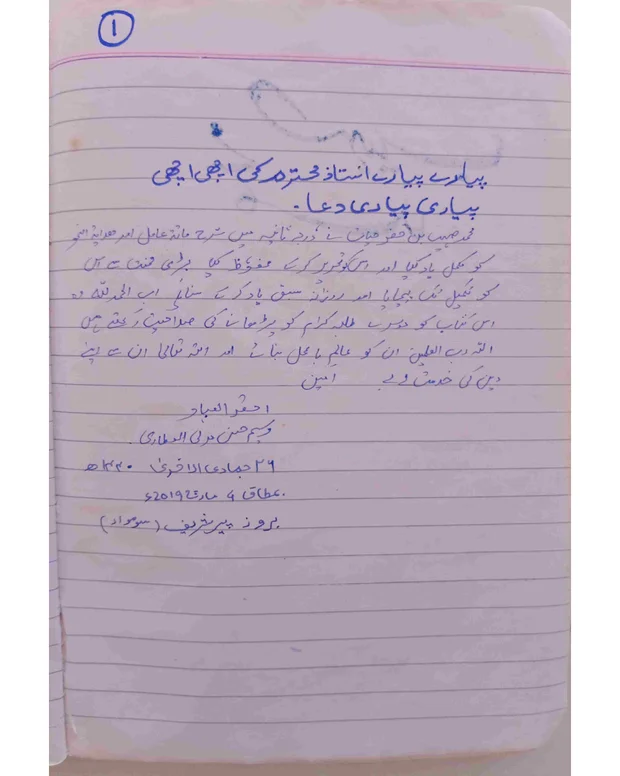 ١
پیارے پیارے استاذ محترم کی اچھی اچھی
پیاری پیاری دعا۔
محمد حبیب بن نے درجہ ثانیہ میں شرح مائۃ عامل اور ھدایۃ النحو
کو مکمل یاد کیا اور اس کو تحریر کرکے محفوظ کیا بڑی محنت سے اس
کو تکمیل تک پہچایا اور روزانہ سبق یاد کرکے سنائے اب الحمد للہ وہ
اس کتاب کو دوسرے طلبہ کرام کو پڑھانے کی صلاحیت رکھتے ہیں
اللہ رب العلمین ان کو عالم باعمل بنائے اور اللہ تعالی ان سے اپنے
دین کی خدمت لے آمین
احقر العباد
وسیم حسن مدنی العطاری
٢٩ جمادی الاخری ١٤٤٠ھ
بمطابق مارچ 2019ء
بروز پیر شریف (سوموار)